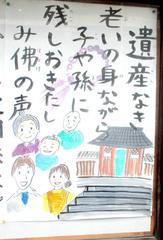 遺産なき
老いの身ながら
子や孫に
残しおきたし
み佛の声